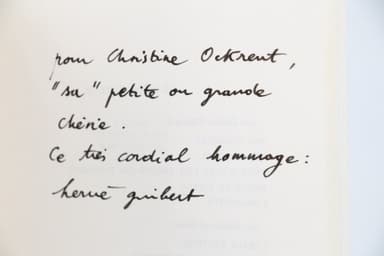 pour Christine Ockrent,
"sa" petite ou grande
chérie.
Ce très cordial hommage :
hervé guibert